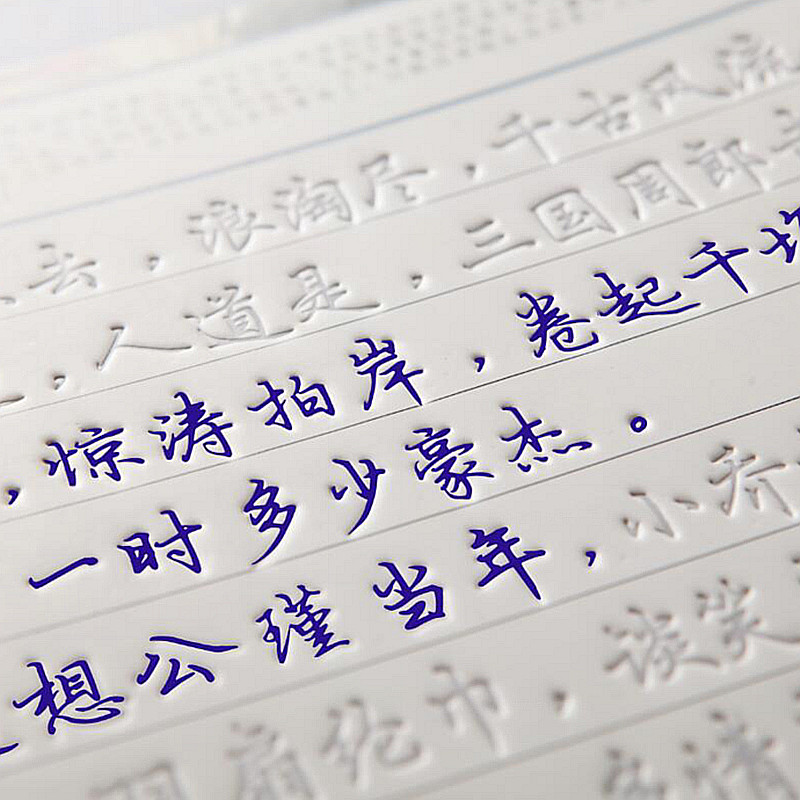 去，浪淘尽，千古风流
，人道是，三国周郎赤
，惊涛拍岸，卷起千堆
一时多少豪杰。
想公瑾当年，小乔
羽扇纶巾，谈笑
多情